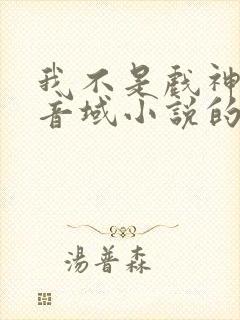 我不是戲神
音域小說的
湯普森